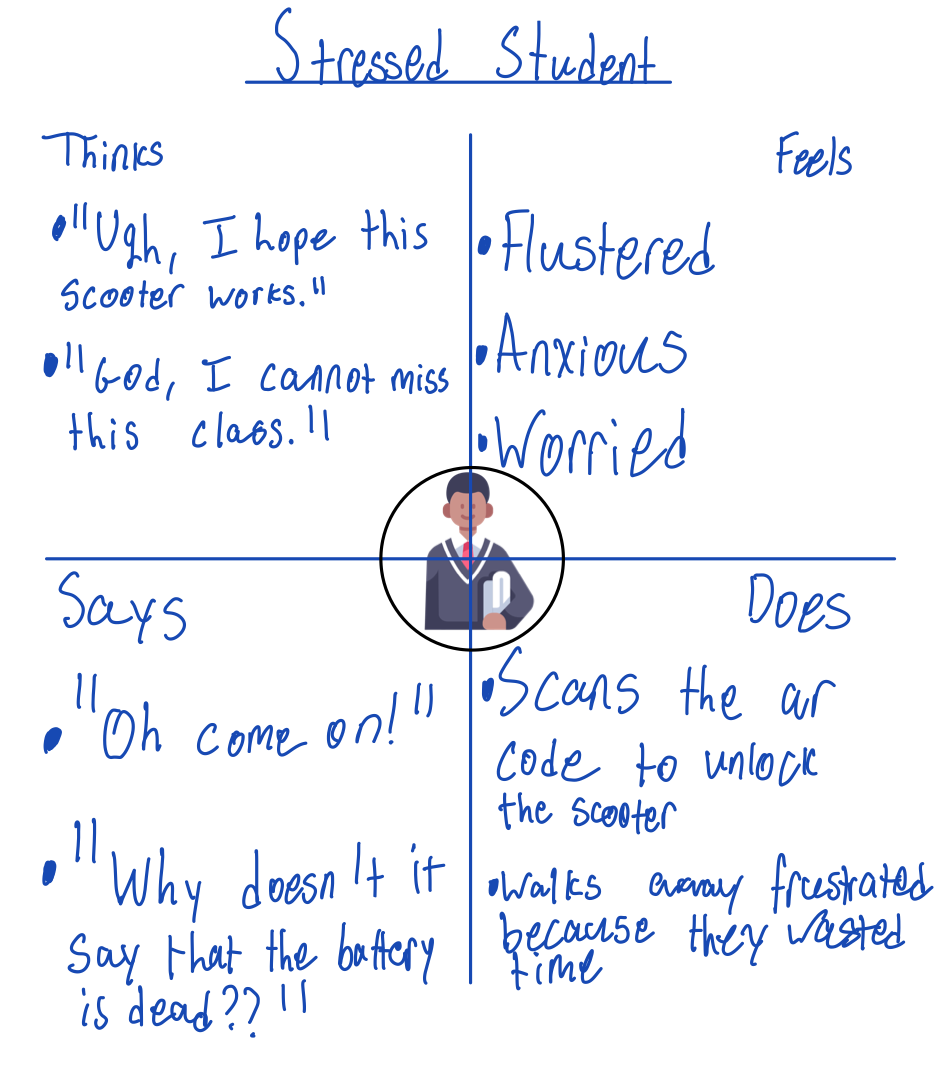 Stressed Student
Thinks
• "Ugh, I hope this
scooter works."
• "God, I cannot miss
this class."
Feels
• Flustered
• Anxious
• Worried
Says
• "Oh come on!"
• "Why doesn't it
say that the battery
is dead??"
Does
• Scans the qr
code to unlock
the scooter
• Walks away frustrated
because they wasted
time